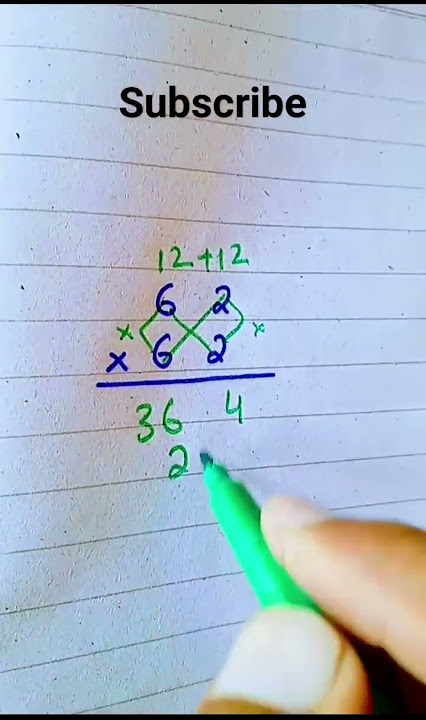 Subscribe
12+12
6 2
x x
x 6 2
36 4
2